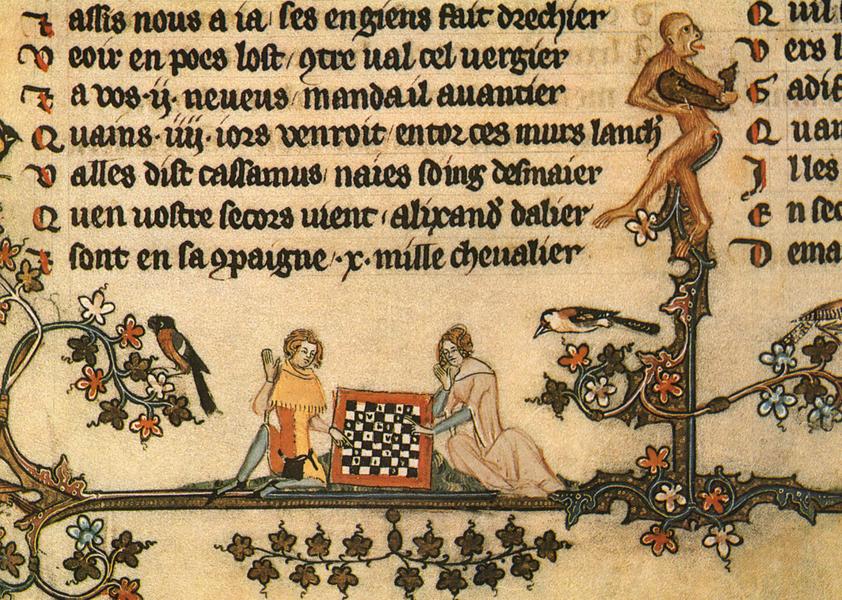 ⁊ assis nous a ia / ses engiens fait drechier
Veoir en poes lost / ꝯtre ual cel uergier
⁊ a vos .ij. neueus / manda il auantier
Quains .iiij. iors venroit / entor ces murs lanch
Valles dist cassamus / naies soing desmaier
Quen uostre secors uient / alixand dalier
⁊ sont en sa ꝯpaigne / .x. mille cheualier
Quil
Vers l
Gadif
Quan
Illes
En sec
Dema